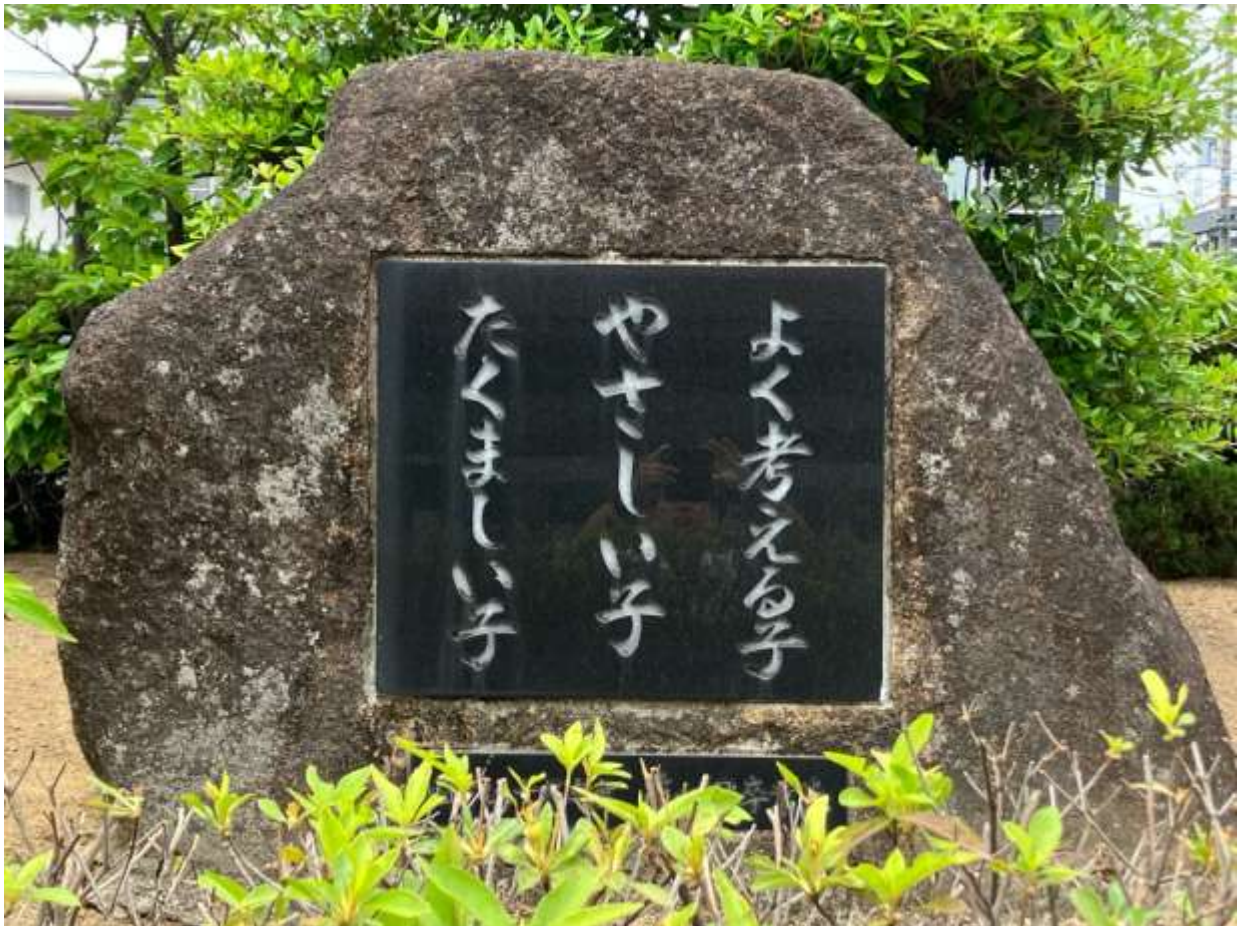 よく考える子
やさしい子
たくましい子